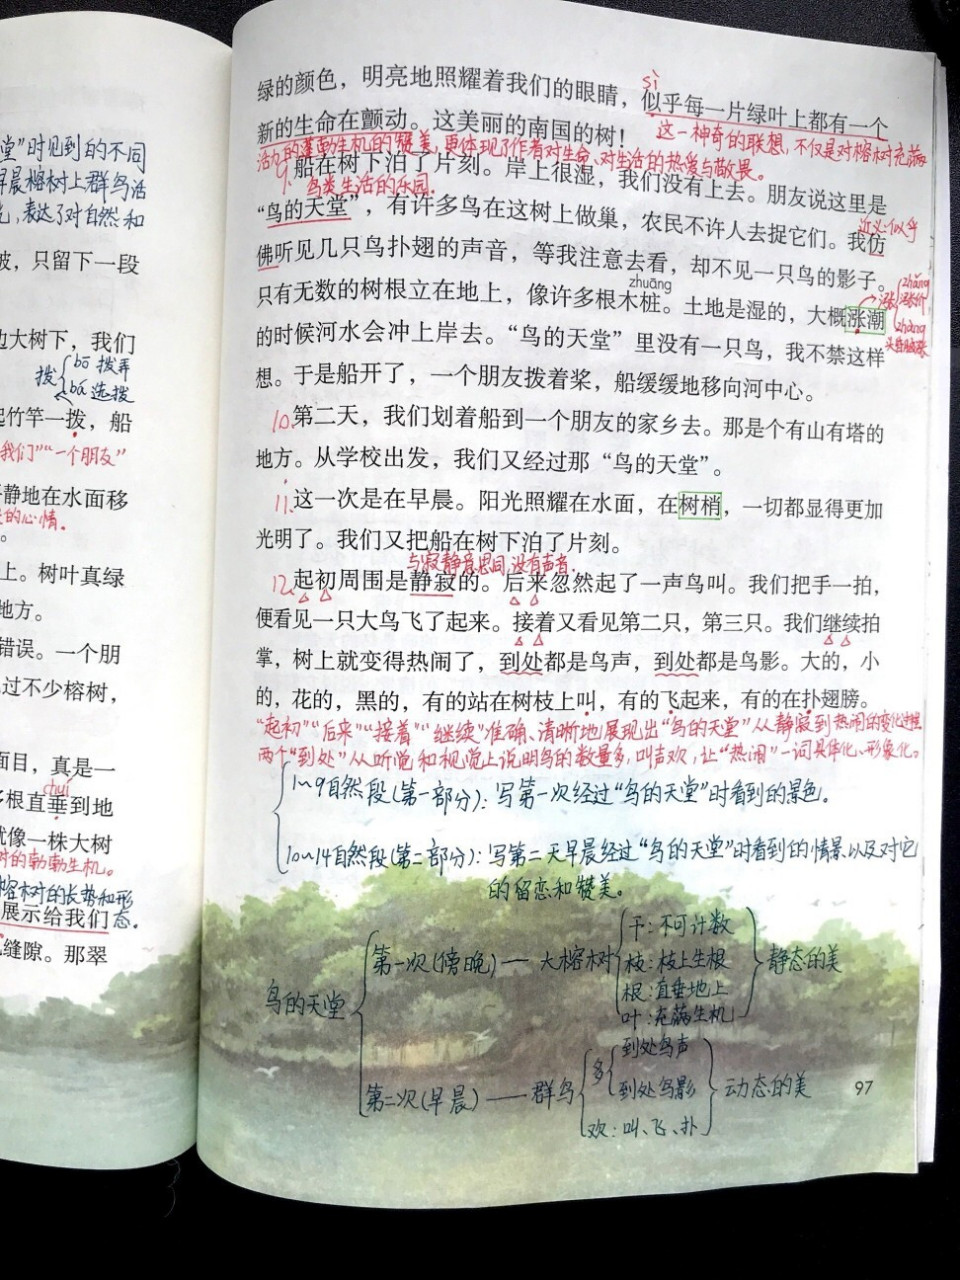 堂”时见到的不同
早晨榕树上群鸟活
表达了对自然和
只留下一段
边大树下，我们
拨 bō 拨弄
bá 选拔
起竹竿一拨，船
我们”“一个朋友”
静地在水面移
的心情。
上。树叶真绿
地方。
错误。一个朋
过不少榕树，
面目，真是一
chuí
多根直垂到地
就像一株大树
树的勃勃生机。
榕树的长势和形
展示给我们态。
缝隙。那翠
绿的颜色，明亮地照耀着我们的眼睛，似乎每一片绿叶上都有一个
sì
新的生命在颤动。这美丽的南国的树！
这一神奇的联想，不仅是对榕树充满
活力的蓬勃生机的赞美，更体现了作者对生命、对生活的热爱与敬畏。
9.船在树下泊了片刻。岸上很湿，我们没有上去。朋友说这里是
鸟类生活的乐园.
“鸟的天堂”，有许多鸟在这树上做巢，农民不许人去捉它们。我仿
近义:似乎
佛听见几只鸟扑翅的声音，等我注意去看，却不见一只鸟的影子。
zhuāng
只有无数的树根立在地上，像许多根木桩。土地是湿的，大概涨潮
涨 zhǎng 涨价
zhàng
的时候河水会冲上岸去。“鸟的天堂”里没有一只鸟，我不禁这样
想。于是船开了，一个朋友拨着桨，船缓缓地移向河中心。
10.第二天，我们划着船到一个朋友的家乡去。那是个有山有塔的
地方。从学校出发，我们又经过那“鸟的天堂”。
11.这一次是在早晨。阳光照耀在水面，在树梢，一切都显得更加
光明了。我们又把船在树下泊了片刻。
与寂静意思同,没有声音.
12.起初周围是静寂的。后来忽然起了一声鸟叫。我们把手一拍，
便看见一只大鸟飞了起来。接着又看见第二只，第三只。我们继续拍
掌，树上就变得热闹了，到处都是鸟声，到处都是鸟影。大的，小
的，花的，黑的，有的站在树枝上叫，有的飞起来，有的在扑翅膀。
“起初”“后来”“接着”“继续”准确、清晰地展现出“鸟的天堂”从静寂到热闹的变化过程
两个“到处”从听觉和视觉上说明鸟的数量多,叫声欢,让“热闹”一词具体化、形象化。
1～9自然段(第一部分):写第一次经过“鸟的天堂”时看到的景色。
10～14自然段(第二部分):写第二天早晨经过“鸟的天堂”时看到的情景以及对它
的留恋和赞美。
鸟的天堂
第一次(傍晚)—大榕树
干:不可计数
枝:枝上生根
根:直垂地上
叶:充满生机
静态的美
第二次(早晨)——群鸟
多
到处鸟声
到处鸟影
欢:叫、飞、扑
动态的美
97